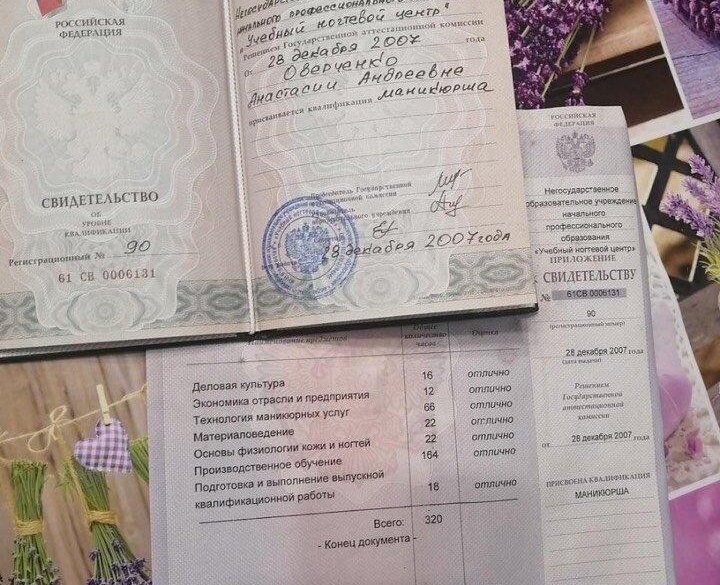 РОССИЙСКАЯ
ФЕДЕРАЦИЯ
СВИДЕТЕЛЬСТВО
ОБ
УРОВНЕ
КВАЛИФИКАЦИИ
Регистрационный № 90
61 СВ 0006131
"Учебный ногтевой центр"
Решением Государственной аттестационной комиссии
От 28 декабря 2007 года
Оверченко
Анастасии Андреевне
присваивается квалификация маникюрша
Председатель Государственной
аттестационной комиссии
учреждения
28 декабря 2007 года
РОССИЙСКАЯ
ФЕДЕРАЦИЯ
Негосударственное
образовательное учреждение
начального
профессионального
образования
«Учебный ногтевой центр»
ПРИЛОЖЕНИЕ
К СВИДЕТЕЛЬСТВУ
№ 61СВ 0006131
90
(регистрационный номер)
28 декабря 2007 года
(дата выдачи)
Решением
Государственной
аттестационной
комиссии
от 28 декабря 2007 года
ПРИСВОЕНА КВАЛИФИКАЦИЯ
МАНИКЮРША
Наименование предметов Общее количество часов Оценка
Деловая культура 16 отлично
Экономика отрасли и предприятия 12 отлично
Технология маникюрных услуг 66 отлично
Материаловедение 22 отлично
Основы физиологии кожи и ногтей 22 отлично
Производственное обучение 164 отлично
Подготовка и выполнение выпускной
квалификационной работы 18 отлично
Всего: 320
- Конец документа -